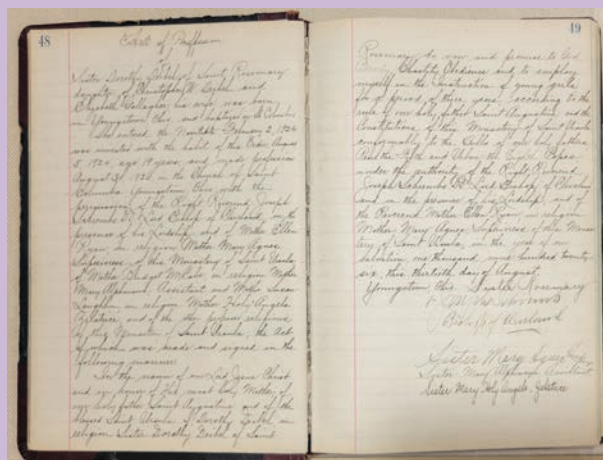 48
of
Sister Dorothy of Saint Rosemary
daughter of Christopher and
Elizabeth Gallagher his wife, was born
in Youngstown Ohio, and baptized in St Columba
She entered the Novitiate February 2, 1924
was invested with the habit of this Order August
5, 1924, age 19 years, and made profession
August 30, 1926 in the Church of Saint
Columba Youngstown Ohio with the
permission of the Right Reverend Joseph
Schrembs Lord Bishop of Cleveland, in the
presence of his Lordship and of Mother Ellen
Ryan in religion Mother Mary Agnes
Superioress of this Monastery of Saint Ursula
of Mother Bridget in religion Mother
Mary Alphonsus, Assistant and Mother Susan
Laughlin in religion Mother Holy Angels
Zelatrice and of the other professed religious
of this Monastery of Saint Ursula; the Act
of which was made and signed in the
following manner
In the name of our Lord Jesus Christ
and in honor of His most holy Mother, of
our holy father Saint Augustine and of the
blessed Saint Ursula I, Dorothy in
religion Sister Dorothy of Saint
49
Rosemary do vow and promise to God
Chastity Obedience and to employ
myself in the instruction of young girls
for a period of three years according to the
rule of our holy father Saint Augustine and the
Constitutions of this Monastery of Saint Ursula
conformably to the Bulls of our holy fathers
Paul the Fifth and Urban the Eighth Popes
under the authority of the Right Reverend
Joseph Schrembs Lord Bishop of Cleveland
and in the presence of his Lordship, and of
the Reverend Mother Ellen Ryan in religion
Mother Mary Agnes Superioress of this Monas
tery of Saint Ursula, in the year of our
salvation one thousand nine hundred twenty-
six, this thirtieth day of August.
Youngstown Ohio. Sister Rosemary
Bishop of Cleveland
Sister Mary Agnes
Sister Mary Alphonsus Assistant
Sister Mary Holy Angels, Zelatrice